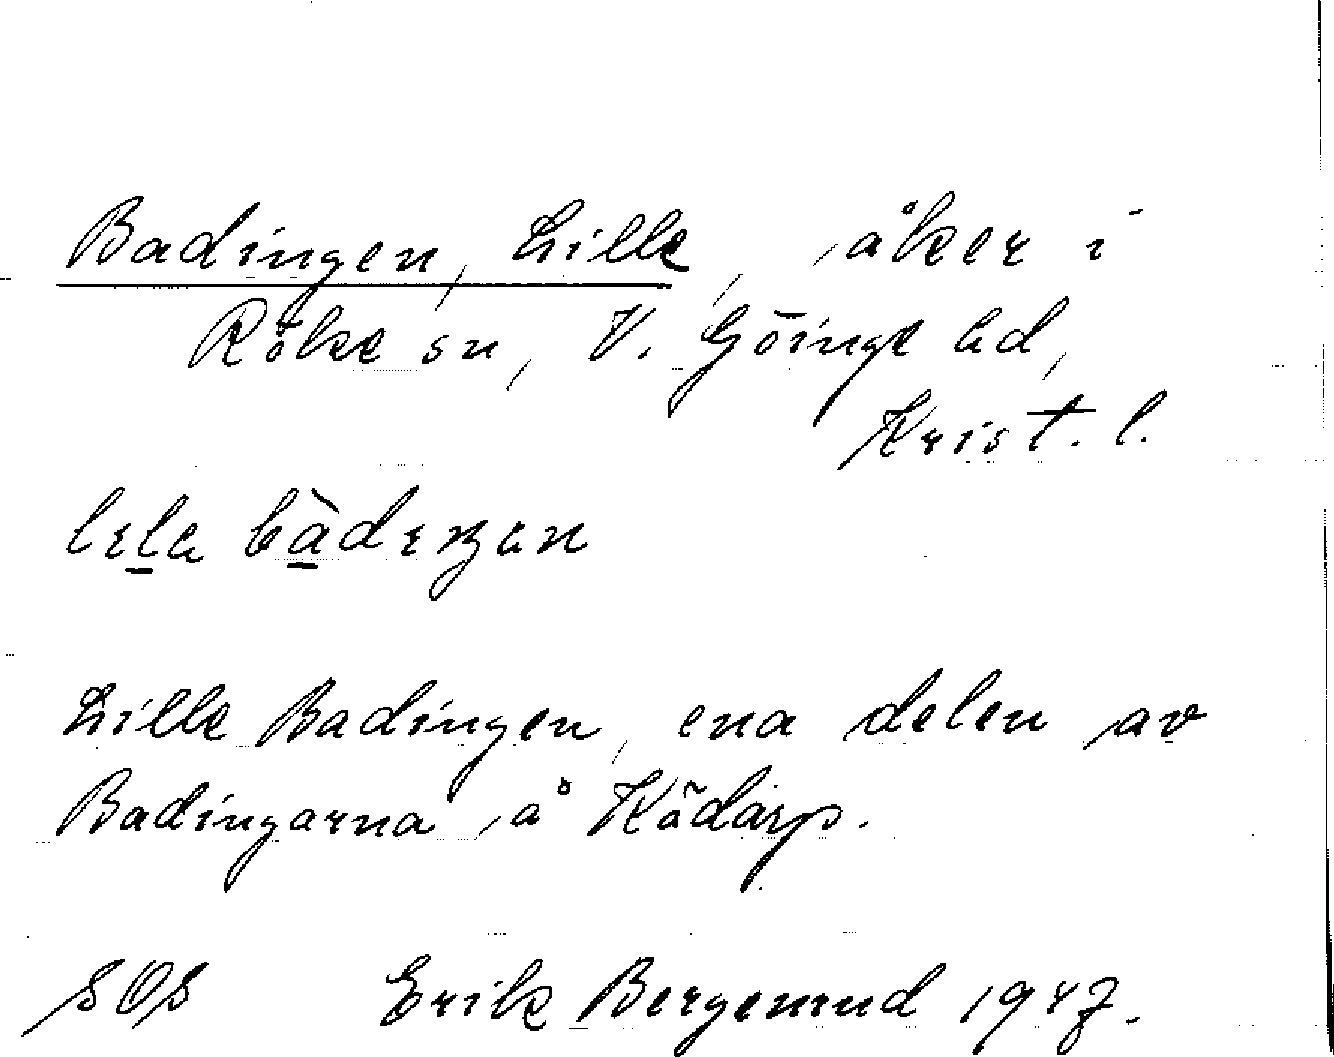 Badingen, Lille, åker i
Röke sn, V. Göinge hd,
Krist. l.
Lille Badingen, ena delen av
Badingarna å Kädarp.
SOS Erik Bergenrud 1947.